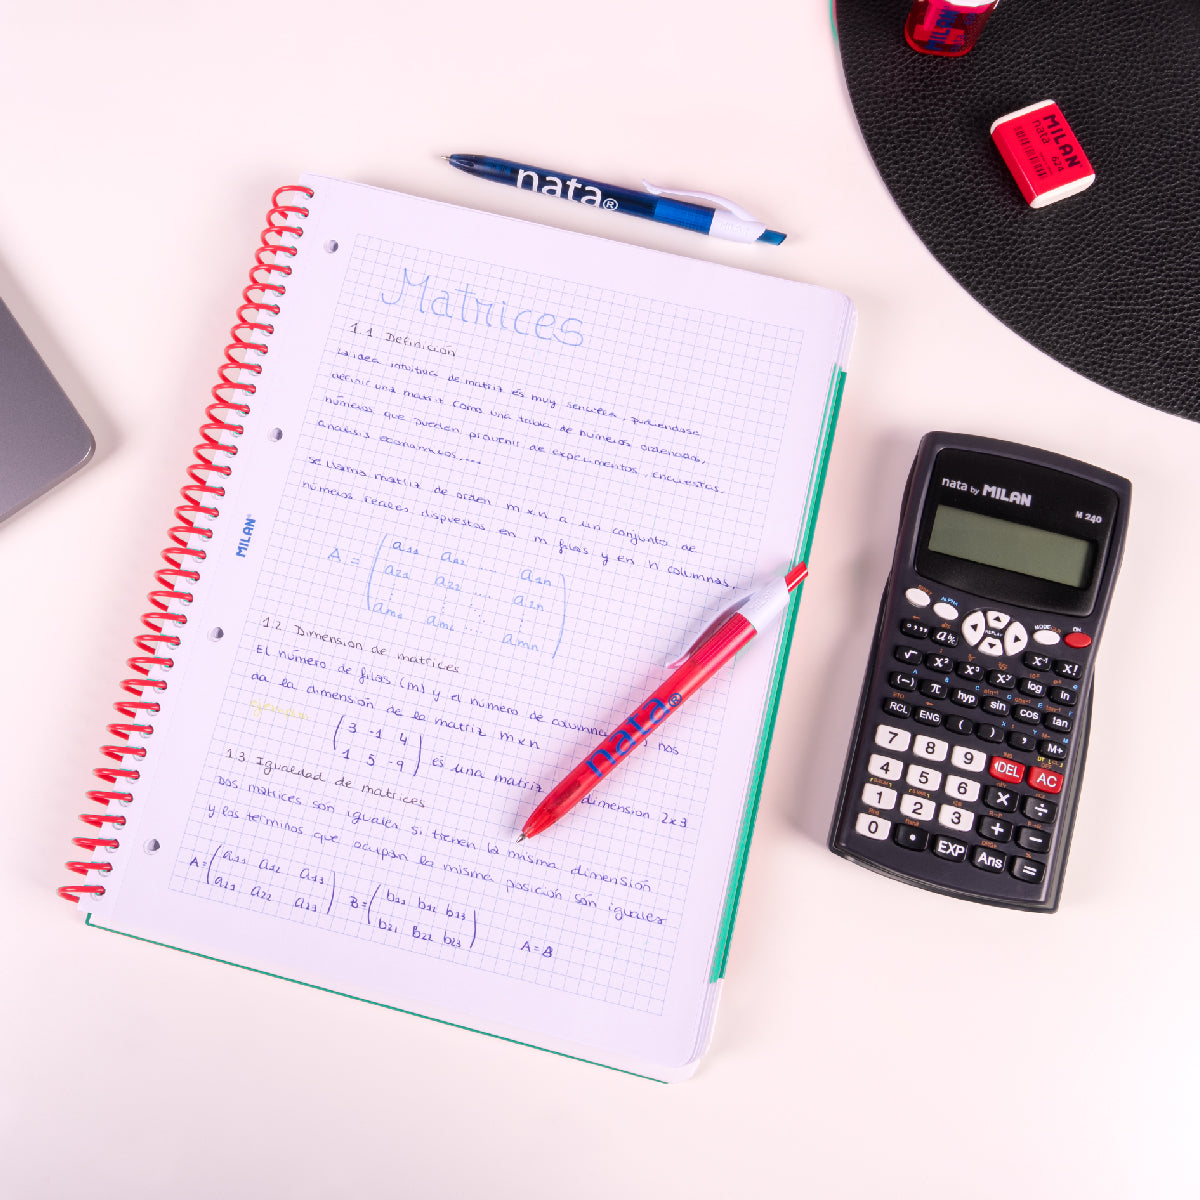 MILAN
MILAN
nata
624
nata®
Matrices
1.1 Definición
La idea intuitiva de matriz es muy sencilla, pudiendose
definir una matriz como una tabla de números ordenados,
números que pueden provenir de experimentos, encuestas,
análisis económicos....
se llama matriz de orden m×n a un conjunto de
números reales dispuestos en m filas y en n columnas.
A = (a11 a12 ... a1n
a21 a22 ... a2n
am1 am2 ... amn)
1.2 Dimension de matrices
El número de filas (m) y el número de columna nos
da la dimensión de la matriz m×n
ejemplo:
(3 -1 4
1 5 -9) es una matriz dimension 2x3
1.3 Igualdad de matrices
Dos matrices son iguales si tienen la misma dimensión
y los terminos que ocupan la misma posición són iguales
A=(a11 a12 a13
a21 a22 a23) B=(b11 b12 b13
b21 b22 b23) A=B
MILAN®
nata®
nata by MILAN
M 240
ALPHA
REPLAY
MODE
ON
a b/c
x⁻¹ x!
√ x² x³ log ln
(−) π hyp sin cos tan
RCL ENG ( ) , M+
7 8 9 DEL AC
4 5 6 × ÷
1 2 3 + −
0 • EXP Ans =